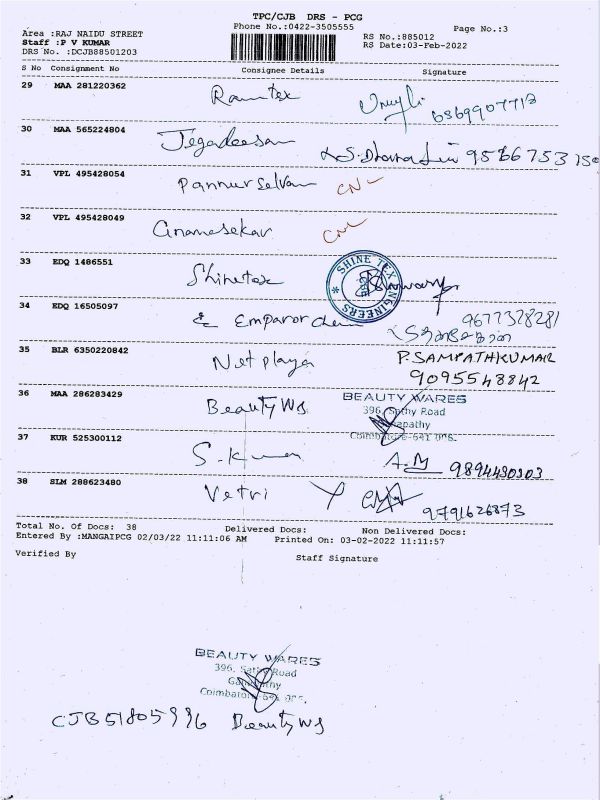 TPC/CJB DRS - PCG
Phone No.:0422-3505555
Page No.:3
Area :RAJ NAIDU STREET
Staff :P V KUMAR
DRS No. :DCJB88501203
RS No.:885012
RS Date:03-Feb-2022
S No Consignment No Consignee Details Signature
29 MAA 281220362 Ramtex
30 MAA 565224804 Jegadeesan
31 VPL 495428054 Pannurselvam CNL
32 VPL 495428049 Gnanasekar CNL
33 EDQ 1486551 Shinetex
SHINE TEX ENGINEERS
34 EDQ 16505097 Emparor 9677378281
35 BLR 6350220842 Netplaya P.SAMPATHKUMAR
9095548842
36 MAA 286283429 Beauty Ws BEAUTY WARES
396, Sathy Road
Coimbatore-641 006.
37 KUR 525300112 S.Kumar
38 SLM 288623480 Vetri 9791626873
Total No. Of Docs: 38 Delivered Docs: Non Delivered Docs:
Entered By :MANGAIPCG 02/03/22 11:11:06 AM Printed On: 03-02-2022 11:11:57
Verified By Staff Signature
BEAUTY WARES
396, Sathy Road
Coimbatore
Beauty Ws